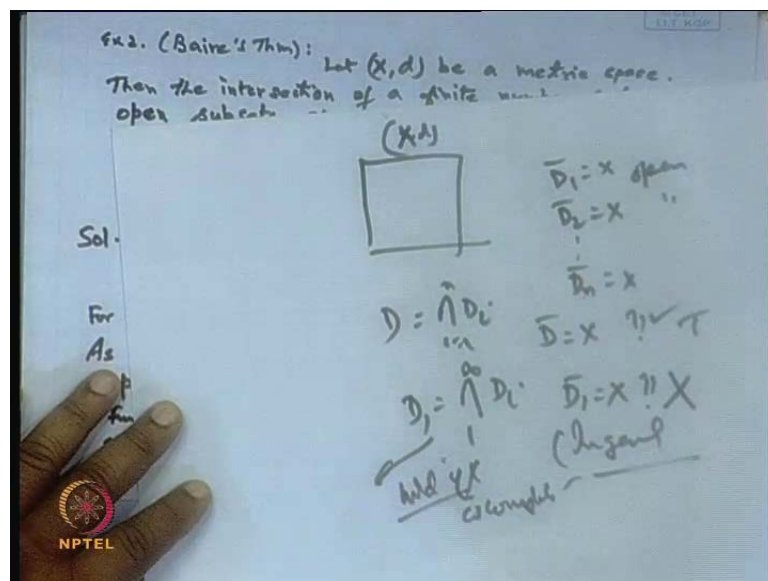 Ex 2. (Baire's Thm): Let (X,d) be a metric space.
Then the intersection of a finite
open subsets
(X,d)
D̄₁ = X open
D̄₂ = X "
D̄ₙ = X
Sol.
D = ⋂ Dᵢ
D̄ = X ?? ✓ T
For
As
D₁ = ⋂ Dᵢ D̄₁ = X ?? X
∞
1
(In general
hold if X
is complete
NPTEL